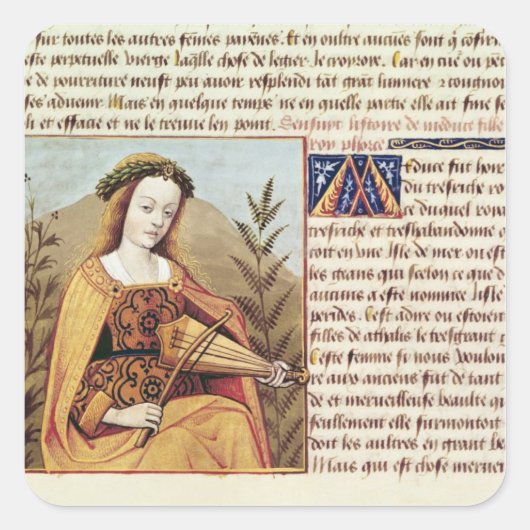 sur toutes les autres femes paiennes. Et en oultre aucuns sont q̄
este perpetuelle vierge laq̄lle chose de legier. Je croroye. Car en
e de pourreture neuf peu avoir resplendi tāt grāt lumiere
ses advenir. Mais en quelque temps ne en quelle partie elle ait fine se
li et efface et ne le treuve len point. Sensuit listoire de meduce fille
roy phorce
Meduce fut hoir
du tresriche ro
ce duquel roya
tresriche et treshabondanne
toit en une Isle de mer ou est
les gens qui selon ce que d
aucuns a este nommee Isle
perides. Cest adire ou estoien
filles de athalis le tresgrant
Ceste femme si nous voulon
re aux anciens fut de tant
de et merveilleuse beaulte q
seullement elle surmontoit
doit les aultres en grant be
Mais qui est chose merver